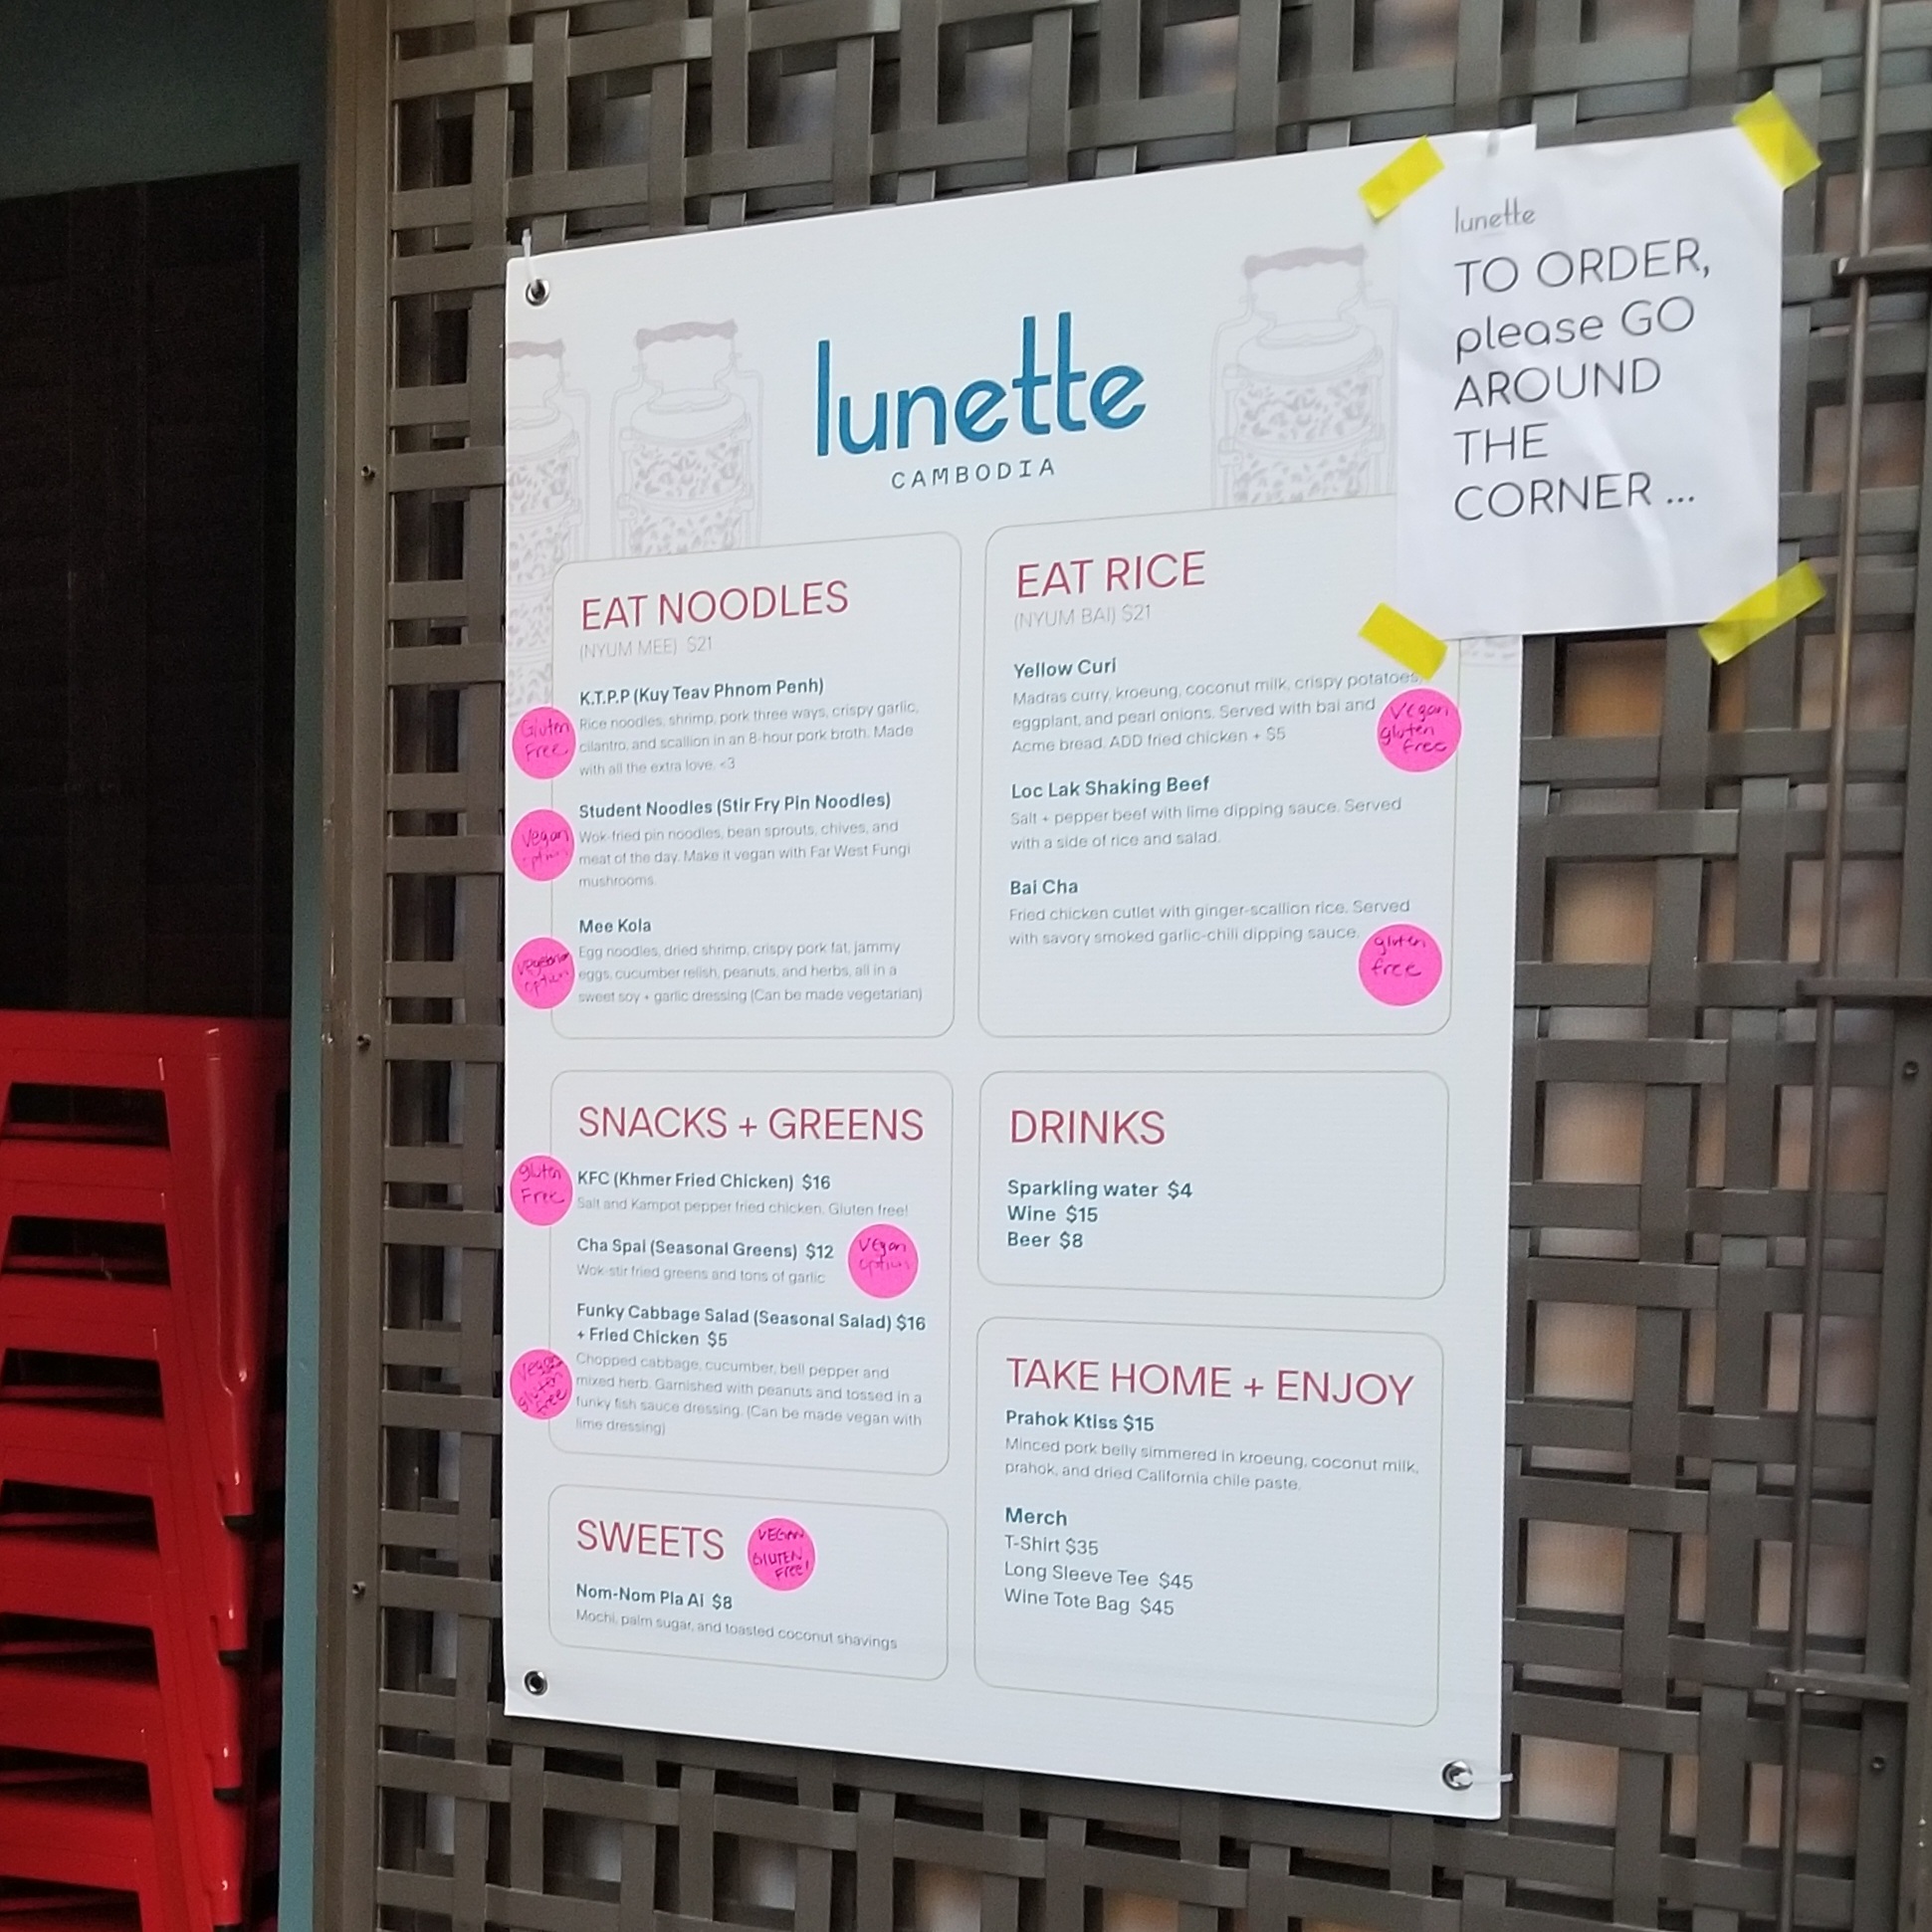 lunette
CAMBODIA
lunette
TO ORDER,
please GO
AROUND
THE
CORNER ...
EAT NOODLES
(NYUM MEE) $21
K.T.P.P (Kuy Teav Phnom Penh)
Rice noodles, shrimp, pork three ways, crispy garlic,
cilantro, and scallion in an 8-hour pork broth. Made
with all the extra love. <3
Gluten
Free
Student Noodles (Stir Fry Pin Noodles)
Wok-fried pin noodles, bean sprouts, chives, and
meat of the day. Make it vegan with Far West Fungi
mushrooms.
Vegan
option
Mee Kola
Egg noodles, dried shrimp, crispy pork fat, jammy
eggs, cucumber relish, peanuts, and herbs, all in a
sweet soy + garlic dressing (Can be made vegetarian)
vegetarian
option
EAT RICE
(NYUM BAI) $21
Yellow Curi
Madras curry, kroeung, coconut milk, crispy potatoes,
eggplant, and pearl onions. Served with bai and
Acme bread. ADD fried chicken + $5
Vegan
gluten
free
Loc Lak Shaking Beef
Salt + pepper beef with lime dipping sauce. Served
with a side of rice and salad.
Bai Cha
Fried chicken cutlet with ginger-scallion rice. Served
with savory smoked garlic-chili dipping sauce.
gluten
free
SNACKS + GREENS
KFC (Khmer Fried Chicken) $16
Salt and Kampot pepper fried chicken. Gluten free!
gluten
Free
Cha Spai (Seasonal Greens) $12
Wok-stir fried greens and tons of garlic
Vegan
option
Funky Cabbage Salad (Seasonal Salad) $16
+ Fried Chicken $5
Chopped cabbage, cucumber, bell pepper and
mixed herb. Garnished with peanuts and tossed in a
funky fish sauce dressing. (Can be made vegan with
lime dressing)
Vegan
gluten
free
DRINKS
Sparkling water $4
Wine $15
Beer $8
SWEETS
VEGAN
GLUTEN
FREE!
Nom-Nom Pla Ai $8
Mochi, palm sugar, and toasted coconut shavings
TAKE HOME + ENJOY
Prahok Ktiss $15
Minced pork belly simmered in kroeung, coconut milk,
prahok, and dried California chile paste.
Merch
T-Shirt $35
Long Sleeve Tee $45
Wine Tote Bag $45